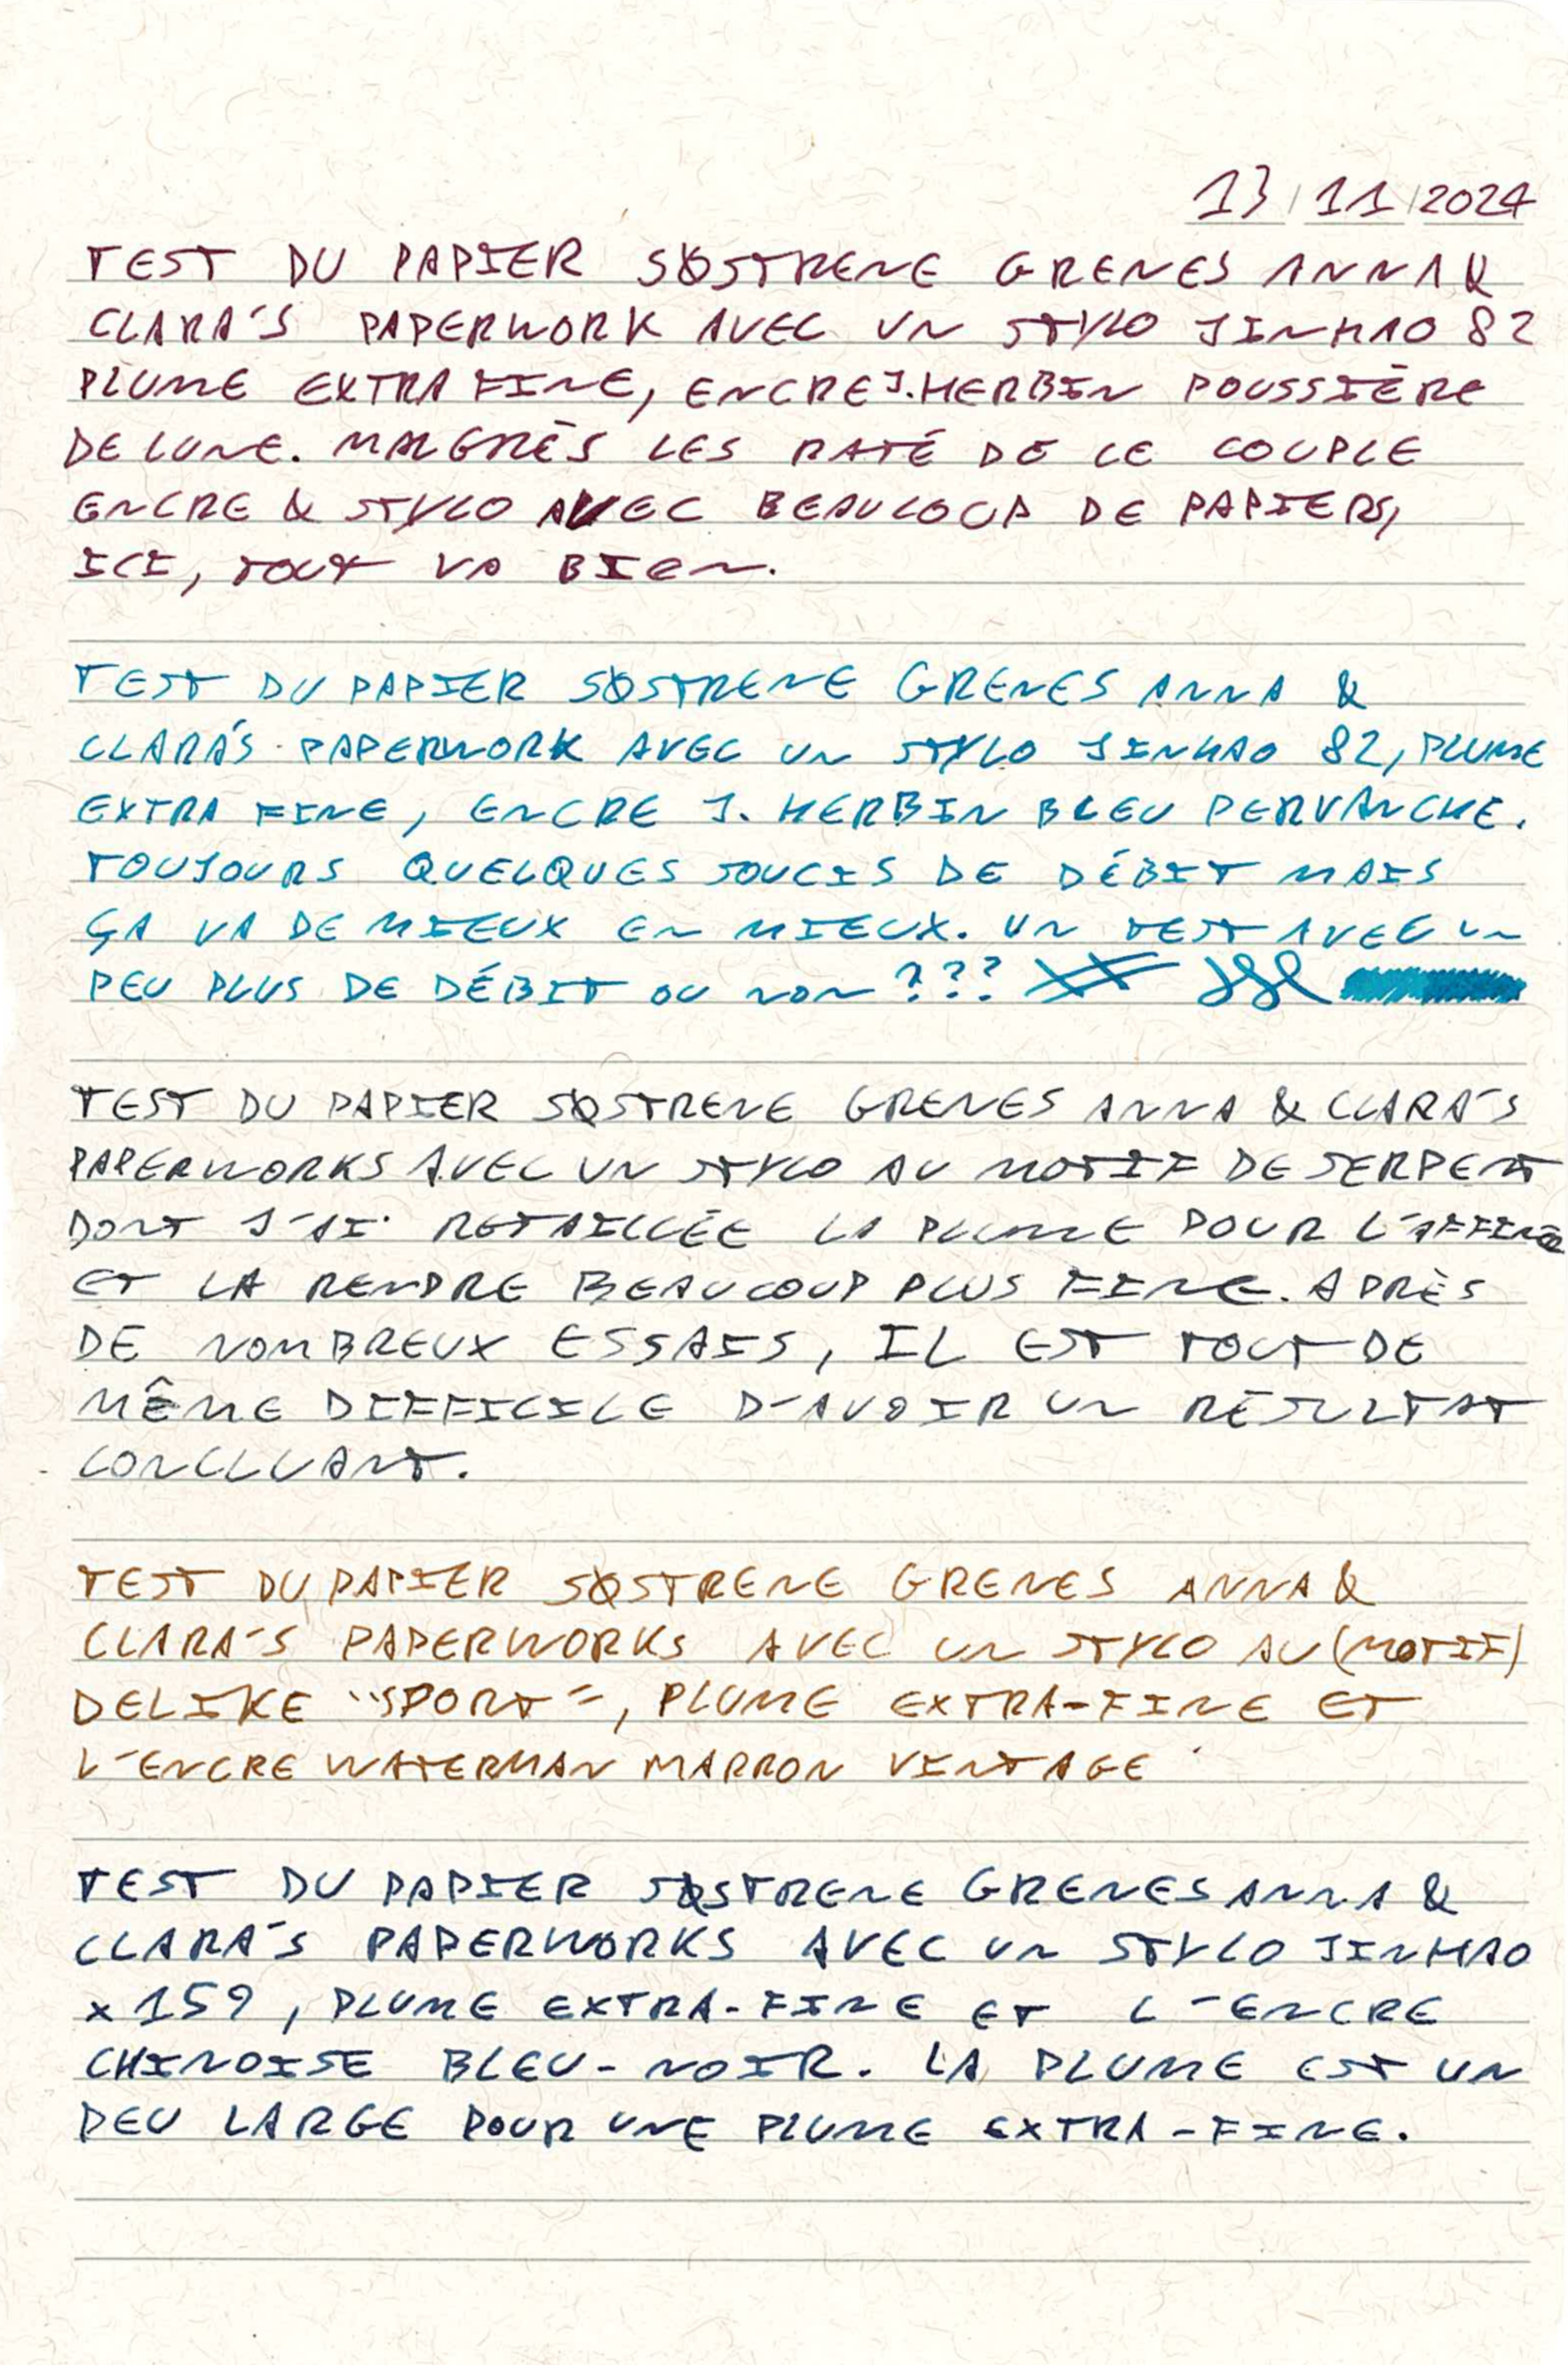 13/11/2024
TEST DU PAPIER SØSTRENE GRENES ANNA &
CLARA'S PAPERWORK AVEC UN STYLO JINHAO 82
PLUME EXTRA FINE, ENCRE J.HERBIN POUSSIÈRE
DE LUNE. MALGRÈS LES RATÉ DE CE COUPLE
ENCRE & STYLO AVEC BEAUCOUP DE PAPIERS,
ICI, TOUT VA BIEN.
TEST DU PAPIER SØSTRENE GRENES ANNA &
CLARA'S PAPERWORK AVEC UN STYLO JINHAO 82, PLUME
EXTRA FINE, ENCRE J. HERBIN BLEU PERVANCHE.
TOUJOURS QUELQUES SOUCIS DE DÉBIT MAIS
ÇA VA DE MIEUX EN MIEUX. UN TEST AVEC UN
PEU PLUS DE DÉBIT OU NON ???
TEST DU PAPIER SØSTRENE GRENES ANNA & CLARA'S
PAPERWORKS AVEC UN STYLO AU MOTIF DE SERPENT
DONT J'AI RETAILLÉE LA PLUME POUR L'AFFINER
ET LA RENDRE BEAUCOUP PLUS FINE. APRÈS
DE NOMBREUX ESSAIS, IL EST TOUT DE
MÊME DIFFICILE D'AVOIR UN RÉSULTAT
CONCLUANT.
TEST DU PAPIER SØSTRENE GRENES ANNA &
CLARA'S PAPERWORKS AVEC UN STYLO AU (MOTIF)
DELIKE "SPORT", PLUME EXTRA-FINE ET
L'ENCRE WATERMAN MARRON VINTAGE
TEST DU PAPIER SØSTRENE GRENES ANNA &
CLARA'S PAPERWORKS AVEC UN STYLO JINHAO
x159, PLUME EXTRA-FINE ET L'ENCRE
CHINOISE BLEU-NOIR. LA PLUME EST UN
PEU LARGE POUR UNE PLUME EXTRA-FINE.